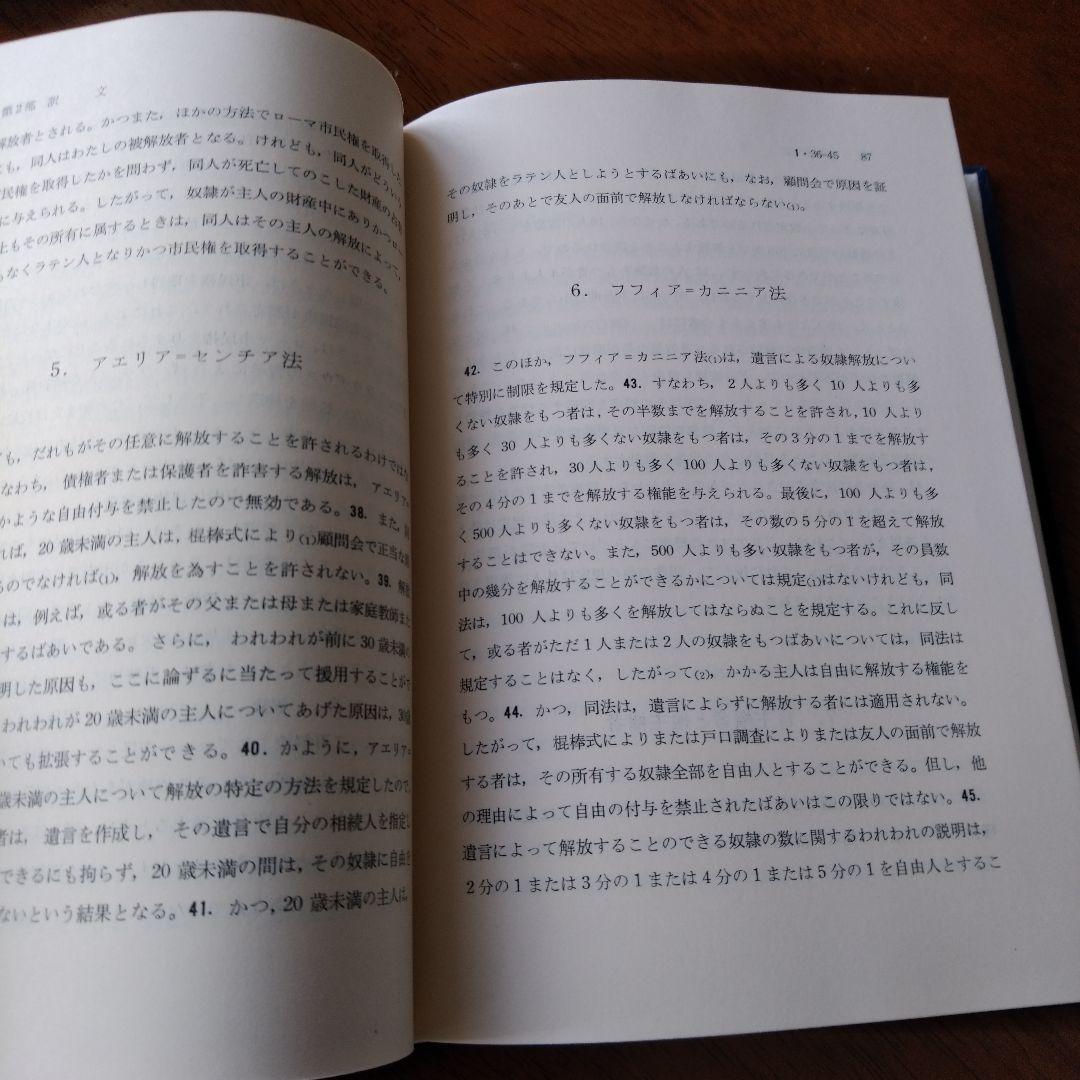 第2部 訳 文
解放者とされる。かつまた，ほかの方法でローマ市民権を取得した
も，同人はわたしの被解放者となる。けれども，同人がどういう
民権を取得したかを問わず，同人が死亡してのこした財産の占有
に与えられる。したがって，奴隷が主人の財産中にありかつロー
上もその所有に属するときは，同人はその主人の解放によって，
もなくラテン人となりかつ市民権を取得することができる。
5. アエリア＝センチア法
も，だれもがその任意に解放することを許されるわけではな
なわち，債権者または保護者を詐害する解放は，アエリア＝
かような自由付与を禁止したので無効である。38. また，同
れば，20歳未満の主人は，棍棒式により(1)顧問会で正当な原
るのでなければ(1)，解放を為すことを許されない。39. 解放
は，例えば，或る者がその父または母または家庭教師また
するばあいである。さらに，われわれが前に30歳未満の
明した原因も，ここに論ずるに当たって援用することがで
われわれが20歳未満の主人についてあげた原因は，30歳
いても拡張することができる。40. かように，アエリア＝
歳未満の主人について解放の特定の方法を規定したので，
者は，遺言を作成し，その遺言で自分の相続人を指定し
できるにも拘らず，20歳未満の間は，その奴隷に自由を
ないという結果となる。41. かつ，20歳未満の主人は，
1・36-45 87
その奴隷をラテン人としようとするばあいにも，なお，顧問会で原因を証
明し，そのあとで友人の面前で解放しなければならない(1)。
6. フフィア＝カニニア法
42. このほか，フフィア＝カニニア法(1)は，遺言による奴隷解放につい
て特別に制限を規定した。43. すなわち，2人よりも多く10人よりも多
くない奴隷をもつ者は，その半数までを解放することを許され，10人より
も多く30人よりも多くない奴隷をもつ者は，その3分の1までを解放す
ることを許され，30人よりも多く100人よりも多くない奴隷をもつ者は，
その4分の1までを解放する権能を与えられる。最後に，100人よりも多
く500人よりも多くない奴隷をもつ者は，その数の5分の1を超えて解放
することはできない。また，500人よりも多い奴隷をもつ者が，その員数
中の幾分を解放することができるかについては規定(1)はないけれども，同
法は，100人よりも多くを解放してはならぬことを規定する。これに反し
て，或る者がただ1人または2人の奴隷をもつばあいについては，同法は
規定することはなく，したがって(2)，かかる主人は自由に解放する権能を
もつ。44. かつ，同法は，遺言によらずに解放する者には適用されない。
したがって，棍棒式によりまたは戸口調査によりまたは友人の面前で解放
する者は，その所有する奴隷全部を自由人とすることができる。但し，他
の理由によって自由の付与を禁止されたばあいはこの限りではない。45.
遺言によって解放することのできる奴隷の数に関するわれわれの説明は，
2分の1または3分の1または4分の1または5分の1を自由人とするこ